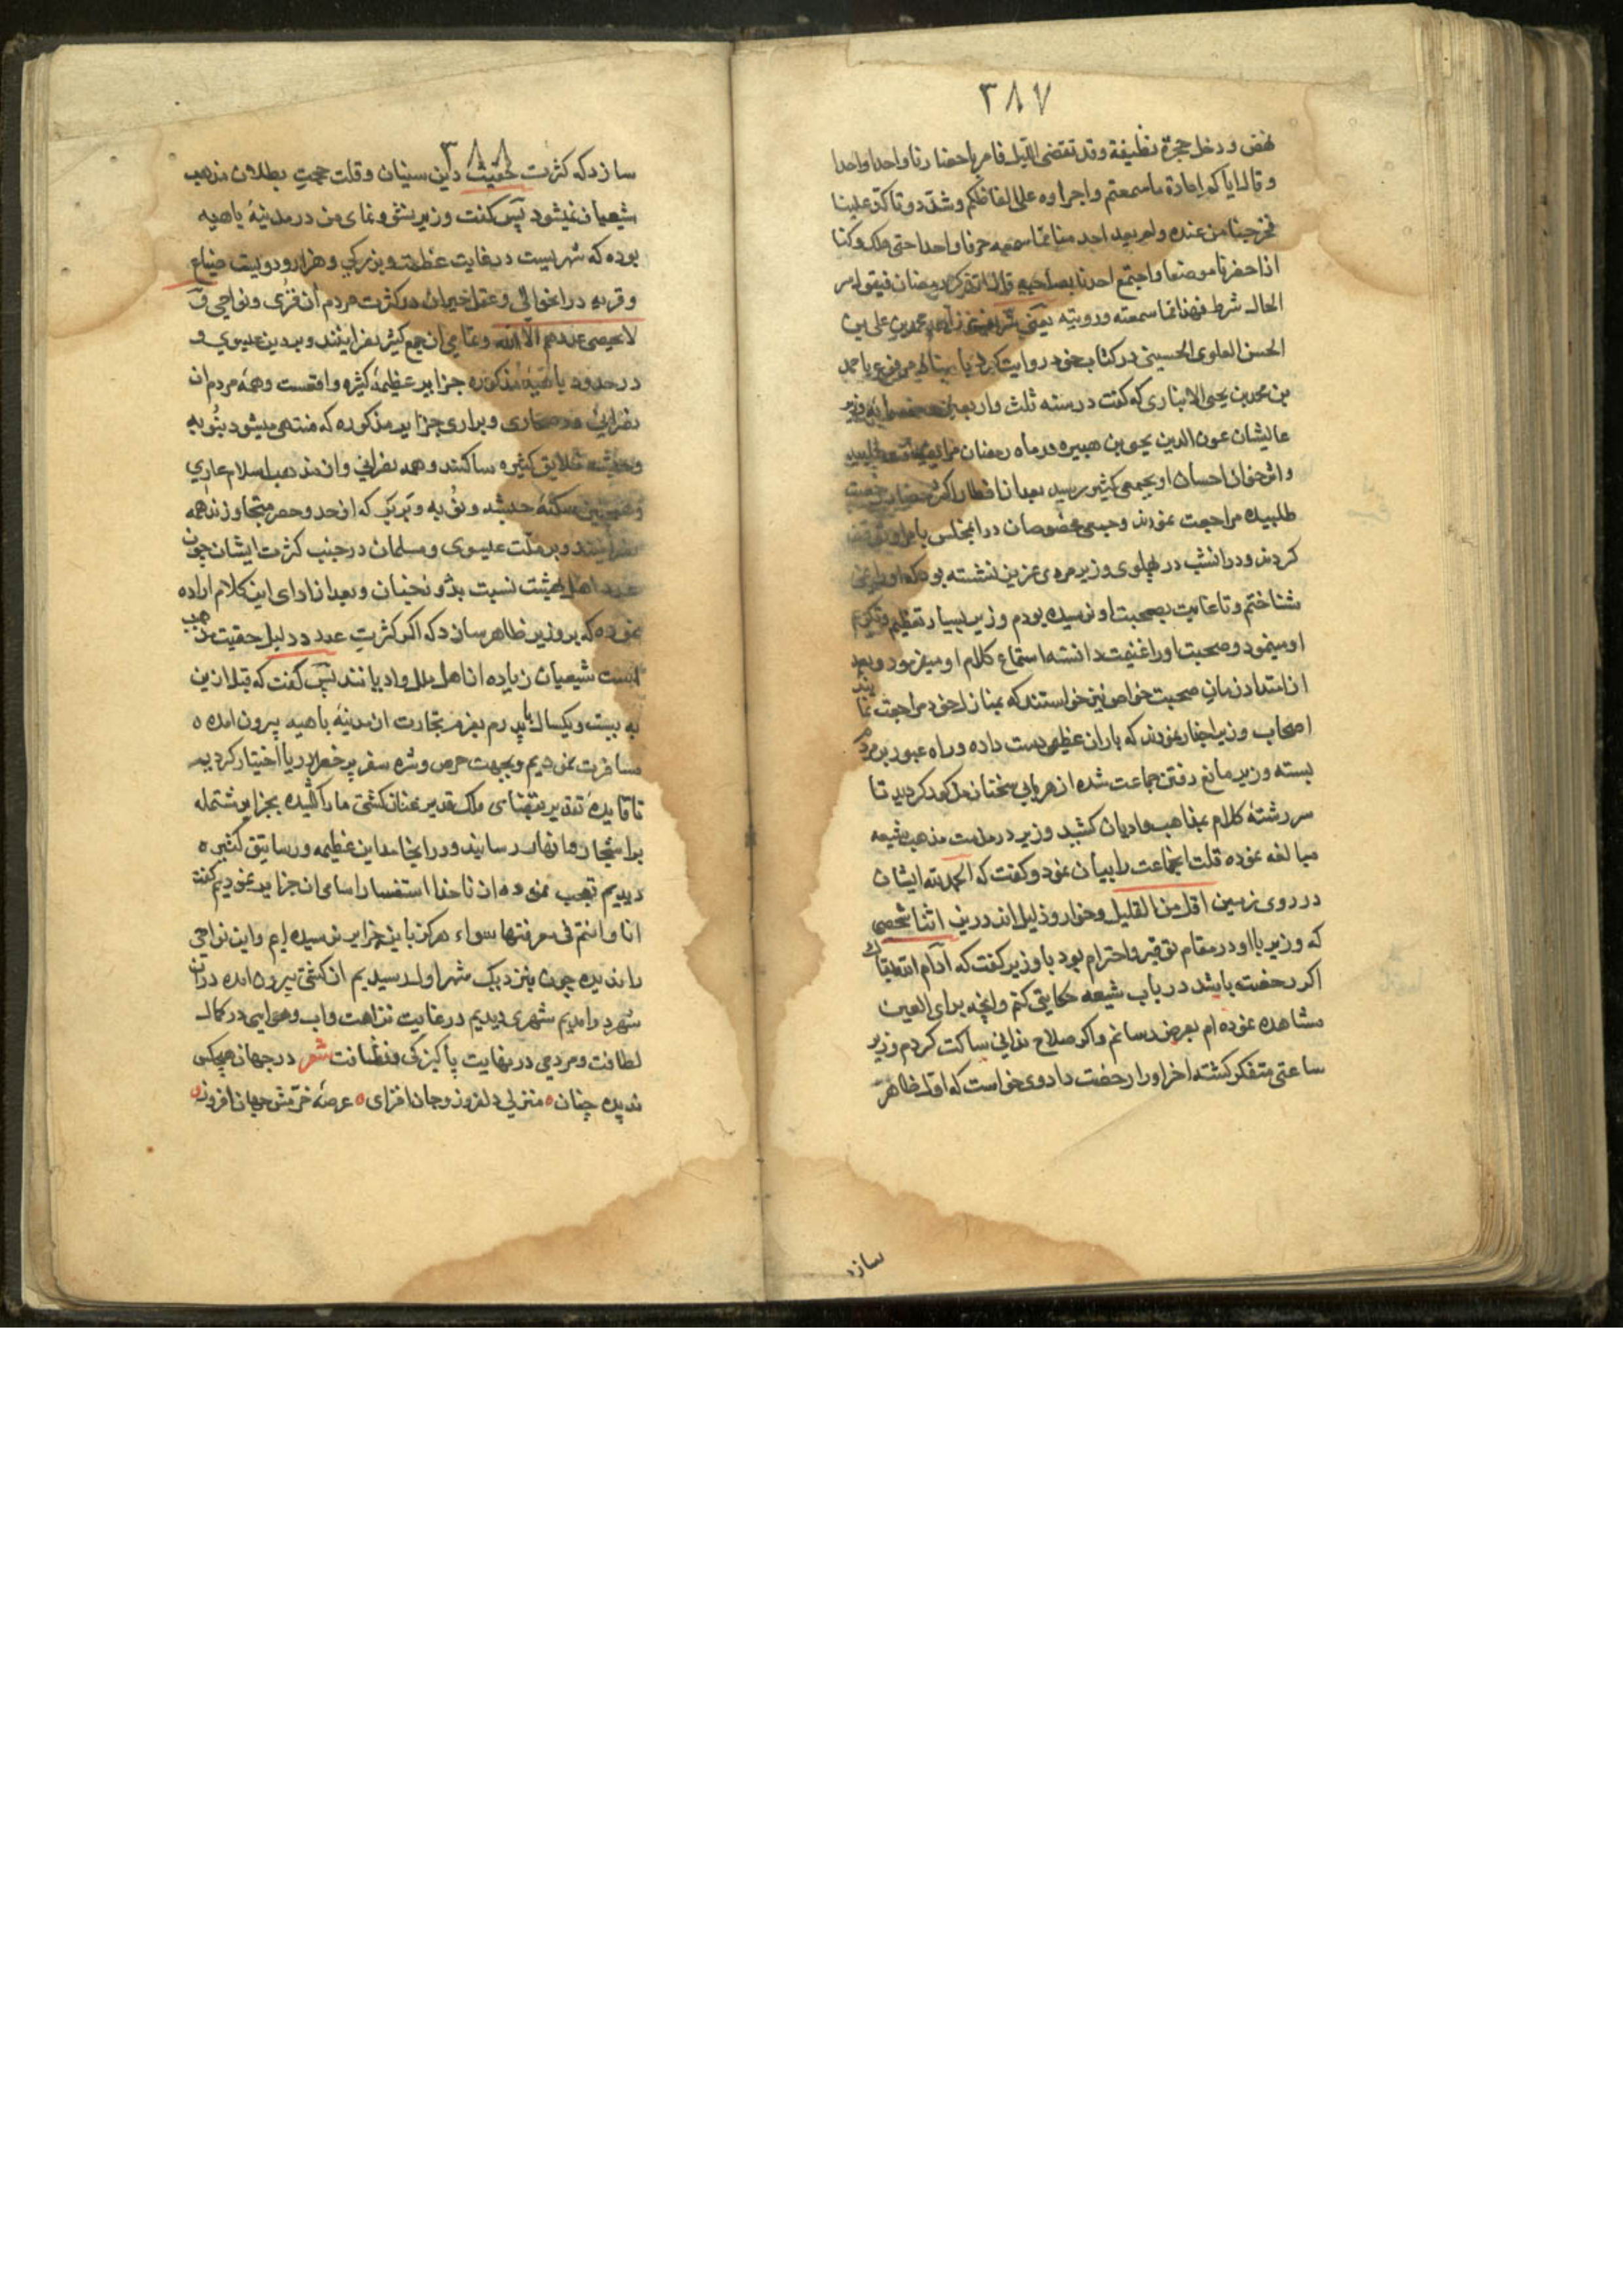 ۳۸۷
نهض و دخل حجرة نظيفة وقد تقضى الليل فامر باحضارنا واحدا واحدا
وقال اياكم اعادة ما سمعتم واجراوه على الفاظكم وشدد و تاكد علينا
فخرجنا من عنده ولم يعد احد منا مما سمعه حرفا واحدا حتى هلك وكنا
اذا حضرنا موضعا واجتمع احدنا بصاحبه قال اتذكر رمضان فيقول مر
الحال شرط فهذا مما سمعته ورويته يعنى محمد بن على بن
الحسن العلوى الحسينى در كتاب خود روايت كرده باسناد مرفوع باحمد
بن محمد بن يحيى الانبارى كه كفت در سنه ثلث واربعين وخمسمايه وزير
عاليشان عون الدين يحيى بن هبيره در ماه رمضان مرا
واثر خوان احسان او بجمعى كثير رسيد بعد از افطار اكثر حضار رخصت
طلبيده مراجعت نمودند و جمعى مخصوصان در انمجلس بامر او توقف
كردند و در انشب در پهلوى وزير مردى عزيز نشسته بود كه او را نمى
شناختم و تا غايت بصحبت او نرسيده بودم وزير بسيار تعظيم و تكريم
او مينمود و صحبت او را غنيمت دانسته استماع كلام او ميفرمود و بعد
از امتداد زمان صحبت خواص نيز خواستند كه بمنازل خود مراجعت نمايند
اصحاب وزير اخبار نمودند كه باران عظيم دست داده و راه عبور بر مردم
بسته وزير مانع رفتن جماعت شده از هر بابى سخنان مذكور كرديد تا
سر رشتهٔ كلام بمذاهب و اديان كشيد وزير در مذمت مذهب شيعه
مبالغه نموده قلت انجماعت را بيان نمود و كفت كه الحمد لله ايشان
در روى زمين اقل من القليل و خوار و ذليل اند درين اثنا شخصى
كه وزير با او در مقام توقير و احترام بود با وزير كفت كه ادام الله بقاك
اكر رخصت باشد در باب شيعه حكايتى كنم و انچه براى العين
مشاهده نموده ام بعرض رسانم و اكر صلاح ندانى ساكت كردم وزير
ساعتى متفكر كشته اخر او را رخصت داد وى خواست كه اول ظاهر
سازد
۳۸۸
سازد كه كثرت حقيت دين سنيان و قلت حجت بطلان مذهب
شيعيان نميشود پس كفت وزير نشو و نماى من در مدينهٔ باهيه
بوده كه شهريست در غايت عظمت و بزركى و هزار و دويست ضياع
و قريه در انحوالى و عقل حيران در كثرت مردم ان قرى و نواحى و
لا يحصى عددهم الا الله و تمامى ان جمع كثير نصرانيند و بر دين عيسوى و
در حدود باهيهٔ مذكوره جزاير عظيمهٔ كثيره واقعست و همه مردم ان
نصرانى و در صحارى و برارى جزاير مذكوره كه منتهى ميشود بنوبه
و حبشه خلايق كثيره ساكنند و همه نصرانى و از مذهب اسلام عارى
و همچنين سكنهٔ حبشه و نوبه و بربر كه از حد و حصر متجاوزند همه
نصرانيند و بر ملت عيسوى و مسلمان در جنب كثرت ايشان چون
عدد اهل بهشت نسبت بدوزخيان و بعد از اداى اين كلام اراده
نموده كه بر وزير ظاهر سازد كه اكر كثرت عدد دليل حقيت مذهب
است شيعيان زياده از اهل ملل و اديانند پس كفت كه قبل ازين
به بيست و يكسال با پدرم بعزم تجارت از مدينهٔ باهيه بيرون امده
مسافرت نموديم و بجهت حرص و شره سفر پر خطر دريا اختيار كرديم
تا قايد تقدير بقضاى ملك قدير عنان كشتى ما را كشيده بجزاير مشتمله
بر اشجار و انهار رسانيد و در انجا مداين عظيمه و رساتيق كثيره
ديديم تعجب نموده از ناخدا استفسار اسامى ان جزاير نموديم كفت
انا وانتم فى معرفتها سواء هركز باين جزاير نرسيده ام و اين نواحى
را نديده چون بنزديك شهر اول رسيديم از كشتى بيرون امده دران
شهر در امديم شهرى ديديم در غايت نزاهت و اب و هوايى در كمال
لطافت و مردمى در نهايت پاكيزكى و نظافت شعر در جهان هيچكس
نديده چنان ه منزلى دلفروز و جان افزاى ه عرصهٔ خرمش جهان افروز ه